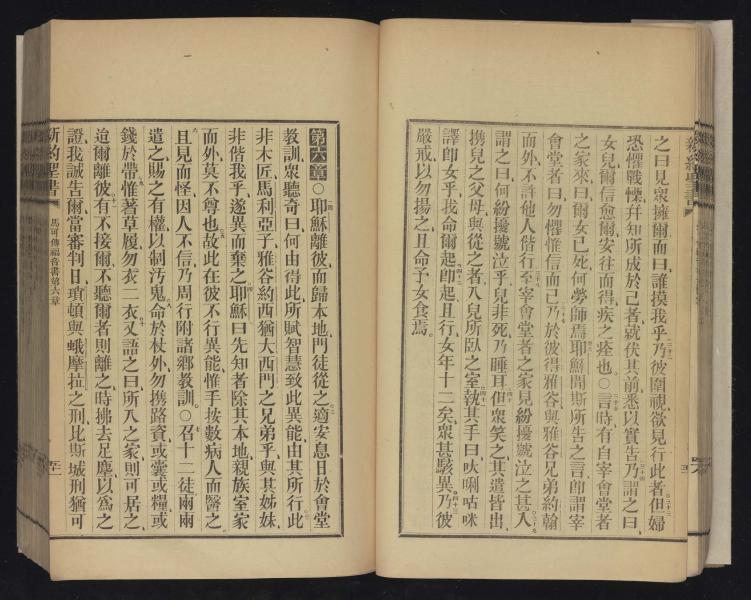 之曰見衆擁爾而曰誰摸我乎乃彼圍視欲見行此者但婦
恐懼戰慄幷知所成於己者就伏其前悉以實告乃謂之曰
女兒爾信愈爾安往而得疾之痊也○言時有自宰會堂者
之家來曰爾女已死何勞師焉耶穌聞斯所告之言卽謂宰
會堂者曰勿懼惟信而已乃於彼得雅谷與雅谷兄弟約翰
而外不許他人偕行至宰會堂者之家見紛擾號泣之甚入
謂之曰何紛擾號泣乎兒非死乃睡耳但衆笑之其遣皆出
携兒之父母與從之者入兒所臥之室執其手曰呔唎咕咪
譯卽女乎我命爾起卽起且行女年十二矣衆甚駭異乃彼
嚴戒以勿揚之且命予女食焉
第六章○耶穌離彼而歸本地門徒從之適安息日於會堂
教訓衆聽奇曰何由得此所賦智慧致此異能由其所行此
非木匠馬利亞子雅谷約西猶大西門之兄弟乎與其姊妹
非偕我乎遂異而棄之耶穌曰先知者除其本地親族室家
而外莫不尊也故此在彼不行異能惟手按數病人而醫之
且見而怪因人不信乃周行附諸鄉教訓○召十二徒兩兩
遣之賜之有權以制污鬼命於杖外勿携路資或囊或糧或
錢於帶惟著草履勿衣二衣又語之曰所入之家則可居之
迨爾離彼有不接爾不聽爾者則離之時拂去足塵以爲之
證我誠告爾當審判日項頓與蛾摩拉之刑比斯城刑猶可
新約聖書
馬可傳福音書第六章